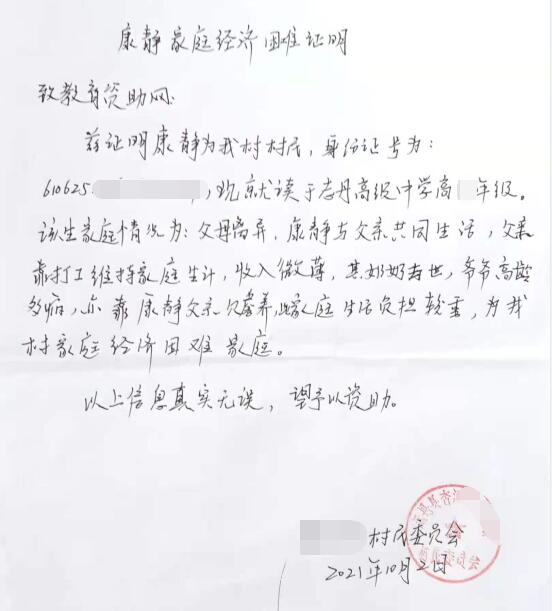 康静家庭经济困难证明
致教育资助网:
兹证明康静为我村村民，身份证号为:
610625，现就读于志丹高级中学高年级。
该生家庭情况为:父母离异，康静与父亲共同生活，父亲
靠打工维持家庭生计，收入微薄，其奶奶去世，爷爷高龄
多病，亦靠康静父亲赡养，此家庭生活负担较重，为我
村家庭经济困难家庭。
以上信息真实无误，望予以资助。
村民委员会
2021年10月2日